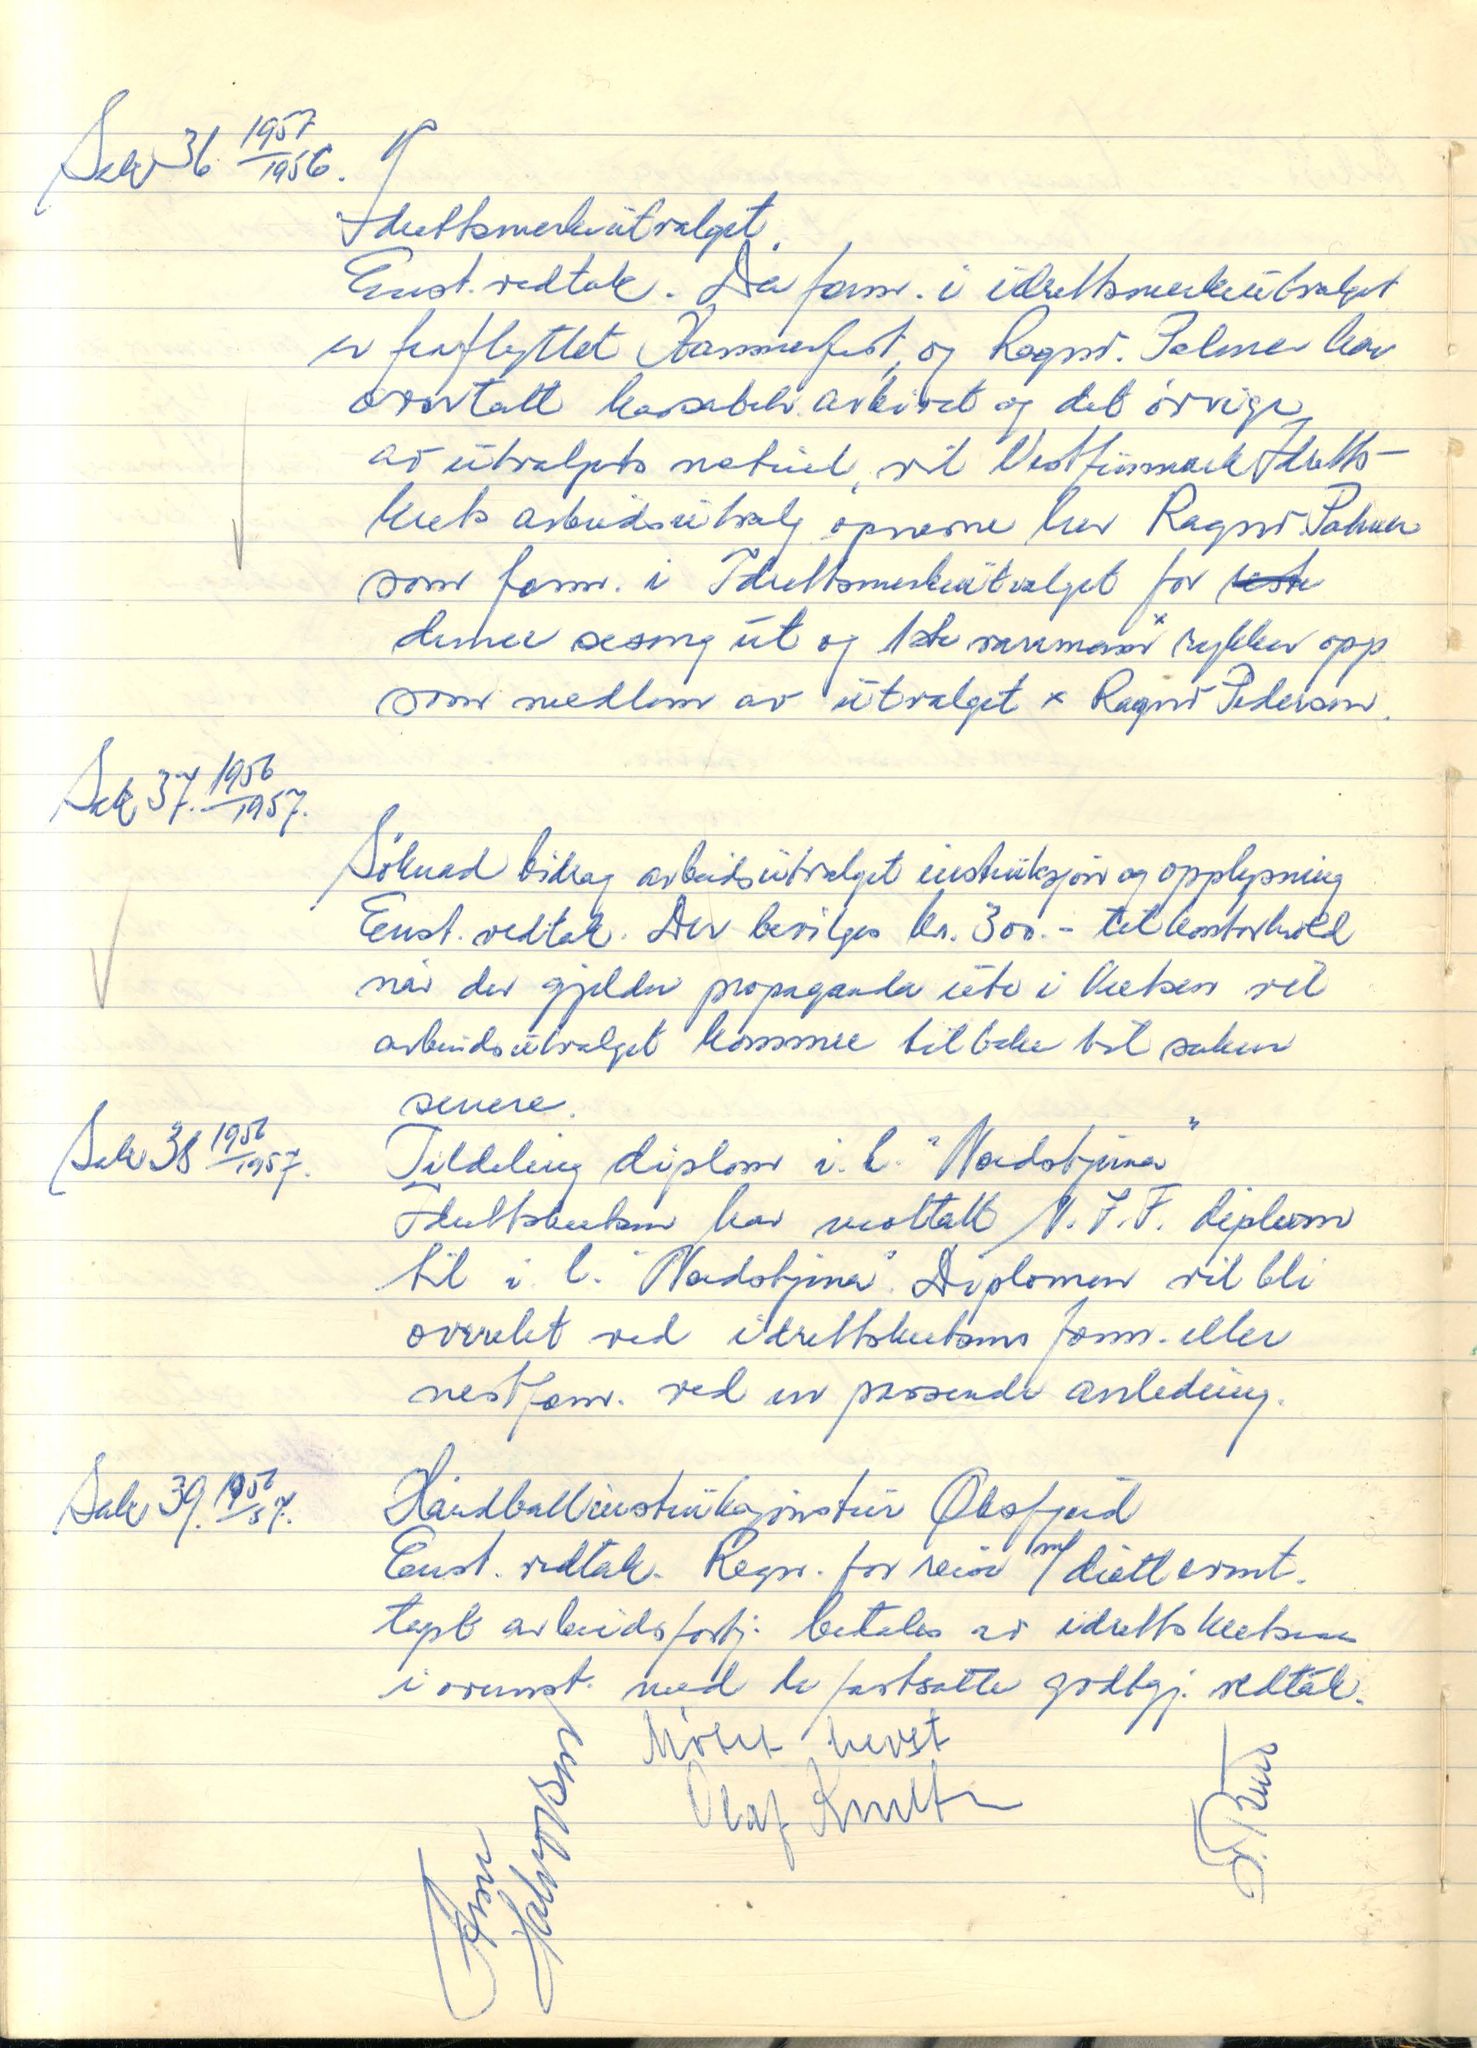 Sak 36 1957/1956.
Idrettsmerkeutvalget.
Enst. vedtak. Da form. i idrettsmerkeutvalget
er fraflyttet Hammerfest, og Ragnv. Palmer har
overtatt kassabeh. arkivet og det övrige
av utvalgets materiel, vil Vestfinnmark Idretts-
krets arbeidsutvalg opnevne herr Ragnv. Palmer
som form. i Idrettsmerkeutvalget for
denne sesong ut og 1ste varamann x rykker opp
som medlem av utvalget x Ragnv Pedersen.
Sak 37. 1956/1957.
Söknad bidrag arbeidsutvalget instruksjon og opplysning
Enst. vedtak. Der bevilges kr. 300.- til kontorhold
når der gjelder propaganda ute i kretsen vil
arbeidsutvalget komme tilbake til saken
senere.
Sak 38 1956/1957.
Tildeling diplom i. l. "Nordstjerna"
Idrettskretsen har mottatt N.I.F. diplom
til i. l. "Nordstjerna". Diplomen vil bli
overrekt ved idrettskretsens form. eller
nestform. ved en passende anledning.
Sak 39. 1956/57.
Håndballinstruksjonstur Öksfjord
Enst. vedtak. Regn. for reise m/ diett evnt.
tapt arbeidsfortj. betales av idrettskretsen
i overenst. med de fastsatte godtgj. vedtak.
Mötet hevet
Olaf Knutsen
Arne
Halvorsen